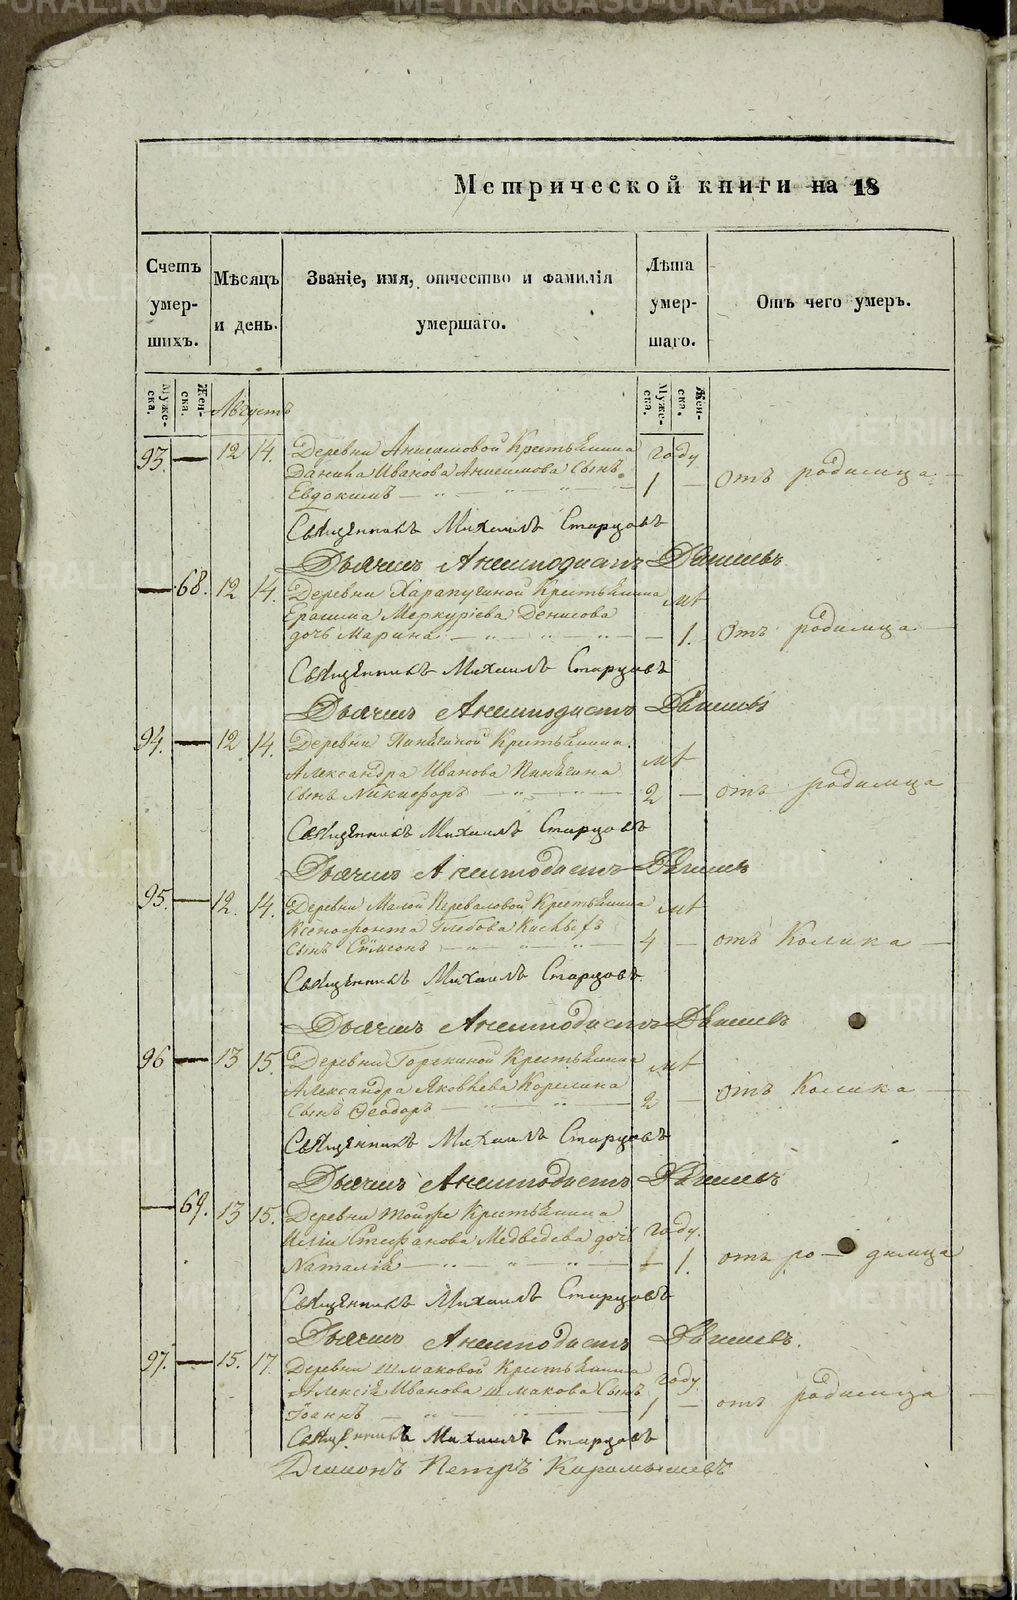 Метрической книги на 18
Счетъ умер-шихъ.
Мѣсяцъ и день.
Званіе, имя, отчество и фамилія умершаго.
Лѣта умер-шаго.
Отъ чего умеръ.
Муже-ска.
Жен-ска.
Муже-ска.
Жен-ска.
Августъ
93. — 12 14. Деревни Анисимовой Крестьянина году
Данила Иванова Анисимова Сынъ
Евдокимъ 1 — отъ родимца
Священникъ Михаилъ Старцовъ
Дьячекъ Анемподистъ
— 68. 12 14. Деревни Харапугиной Крестьянина лѣт
Ерасима Меркуріева Денисова
дочь Марина — 1. Отъ родимца
Священникъ Михаилъ Старцовъ
Дьячекъ Анемподистъ
94. — 12 14. Деревни Пинягиной Крестьянина. лѣт
Александра Иванова Пинягина
Сынъ Никифоръ 2 — отъ родимца
Священникъ Михаилъ Старцовъ
Дьячекъ Анемподистъ
95. — 12. 14. Деревни Малой Переваловой Крестьянина лѣт
Ксенофонта Глебова
Сынъ Сѵмеонъ 4 — отъ Колика
Священникъ Михаилъ Старцовъ
Дьячекъ Анемподистъ
96 — 13 15. Деревни Крестьянина лѣт
Александра Яковлева Корелина
Сынъ Ѳеодоръ 2 — отъ Колика
Священникъ Михаилъ Старцовъ
Дьячекъ Анемподистъ
— 69. 13 15. Деревни тойже Крестьянина году.
Иліи Стефанова Медведева дочь
Наталія — 1. отъ ро — димца
Священникъ Михаилъ Старцовъ
Дьячекъ Анемподистъ
97. — 15. 17. Деревни Шмаковой Крестьянина году
Алексія Иванова Шмакова Сынъ
Іоаннъ 1 — отъ родимца
Священникъ Михаилъ Старцовъ
Діаконъ Петръ Карамышевъ
METRIKI.GASO-URAL.RU